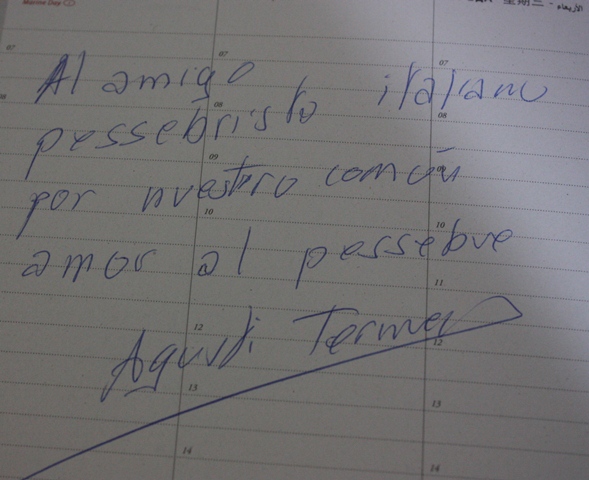 星期三
07
07
07
Al amigo italiano
08
08
08
pessebristo
09
por nuestro común
10
10
amor al pessebre
11
12
12
Agustí
13
13
14
14